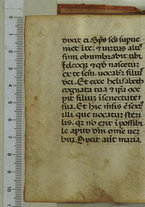 dixit ei. Sp̄s sc̄s supue
niet ī te: et uirtus altis
simi obumbrabit tibi.
Ideoq; et qd̄ nascetur
ex te scm̄ uocabit̄ filius
dei. Et ecce helisabeth
cognata tua et ipa
pit filium ī senectute
sua. Et hic mēsis est
illi que uocatur sterilis
quia nō erit īpossibi
le apud dm̄ omne uer
bum. Dixit aut̄ maria